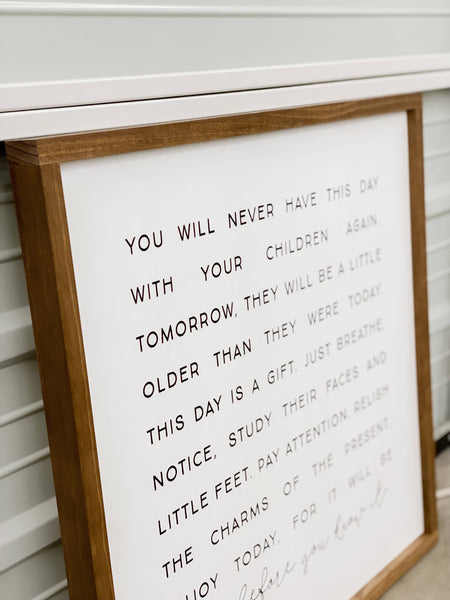 YOU WILL NEVER HAVE THIS DAY
WITH YOUR CHILDREN AGAIN.
TOMORROW, THEY WILL BE A LITTLE
OLDER THAN THEY WERE TODAY.
THIS DAY IS A GIFT. JUST BREATHE,
NOTICE, STUDY THEIR FACES AND
LITTLE FEET. PAY ATTENTION. RELISH
THE CHARMS OF THE PRESENT.
TODAY. FOR IT WILL BE
before you know it.